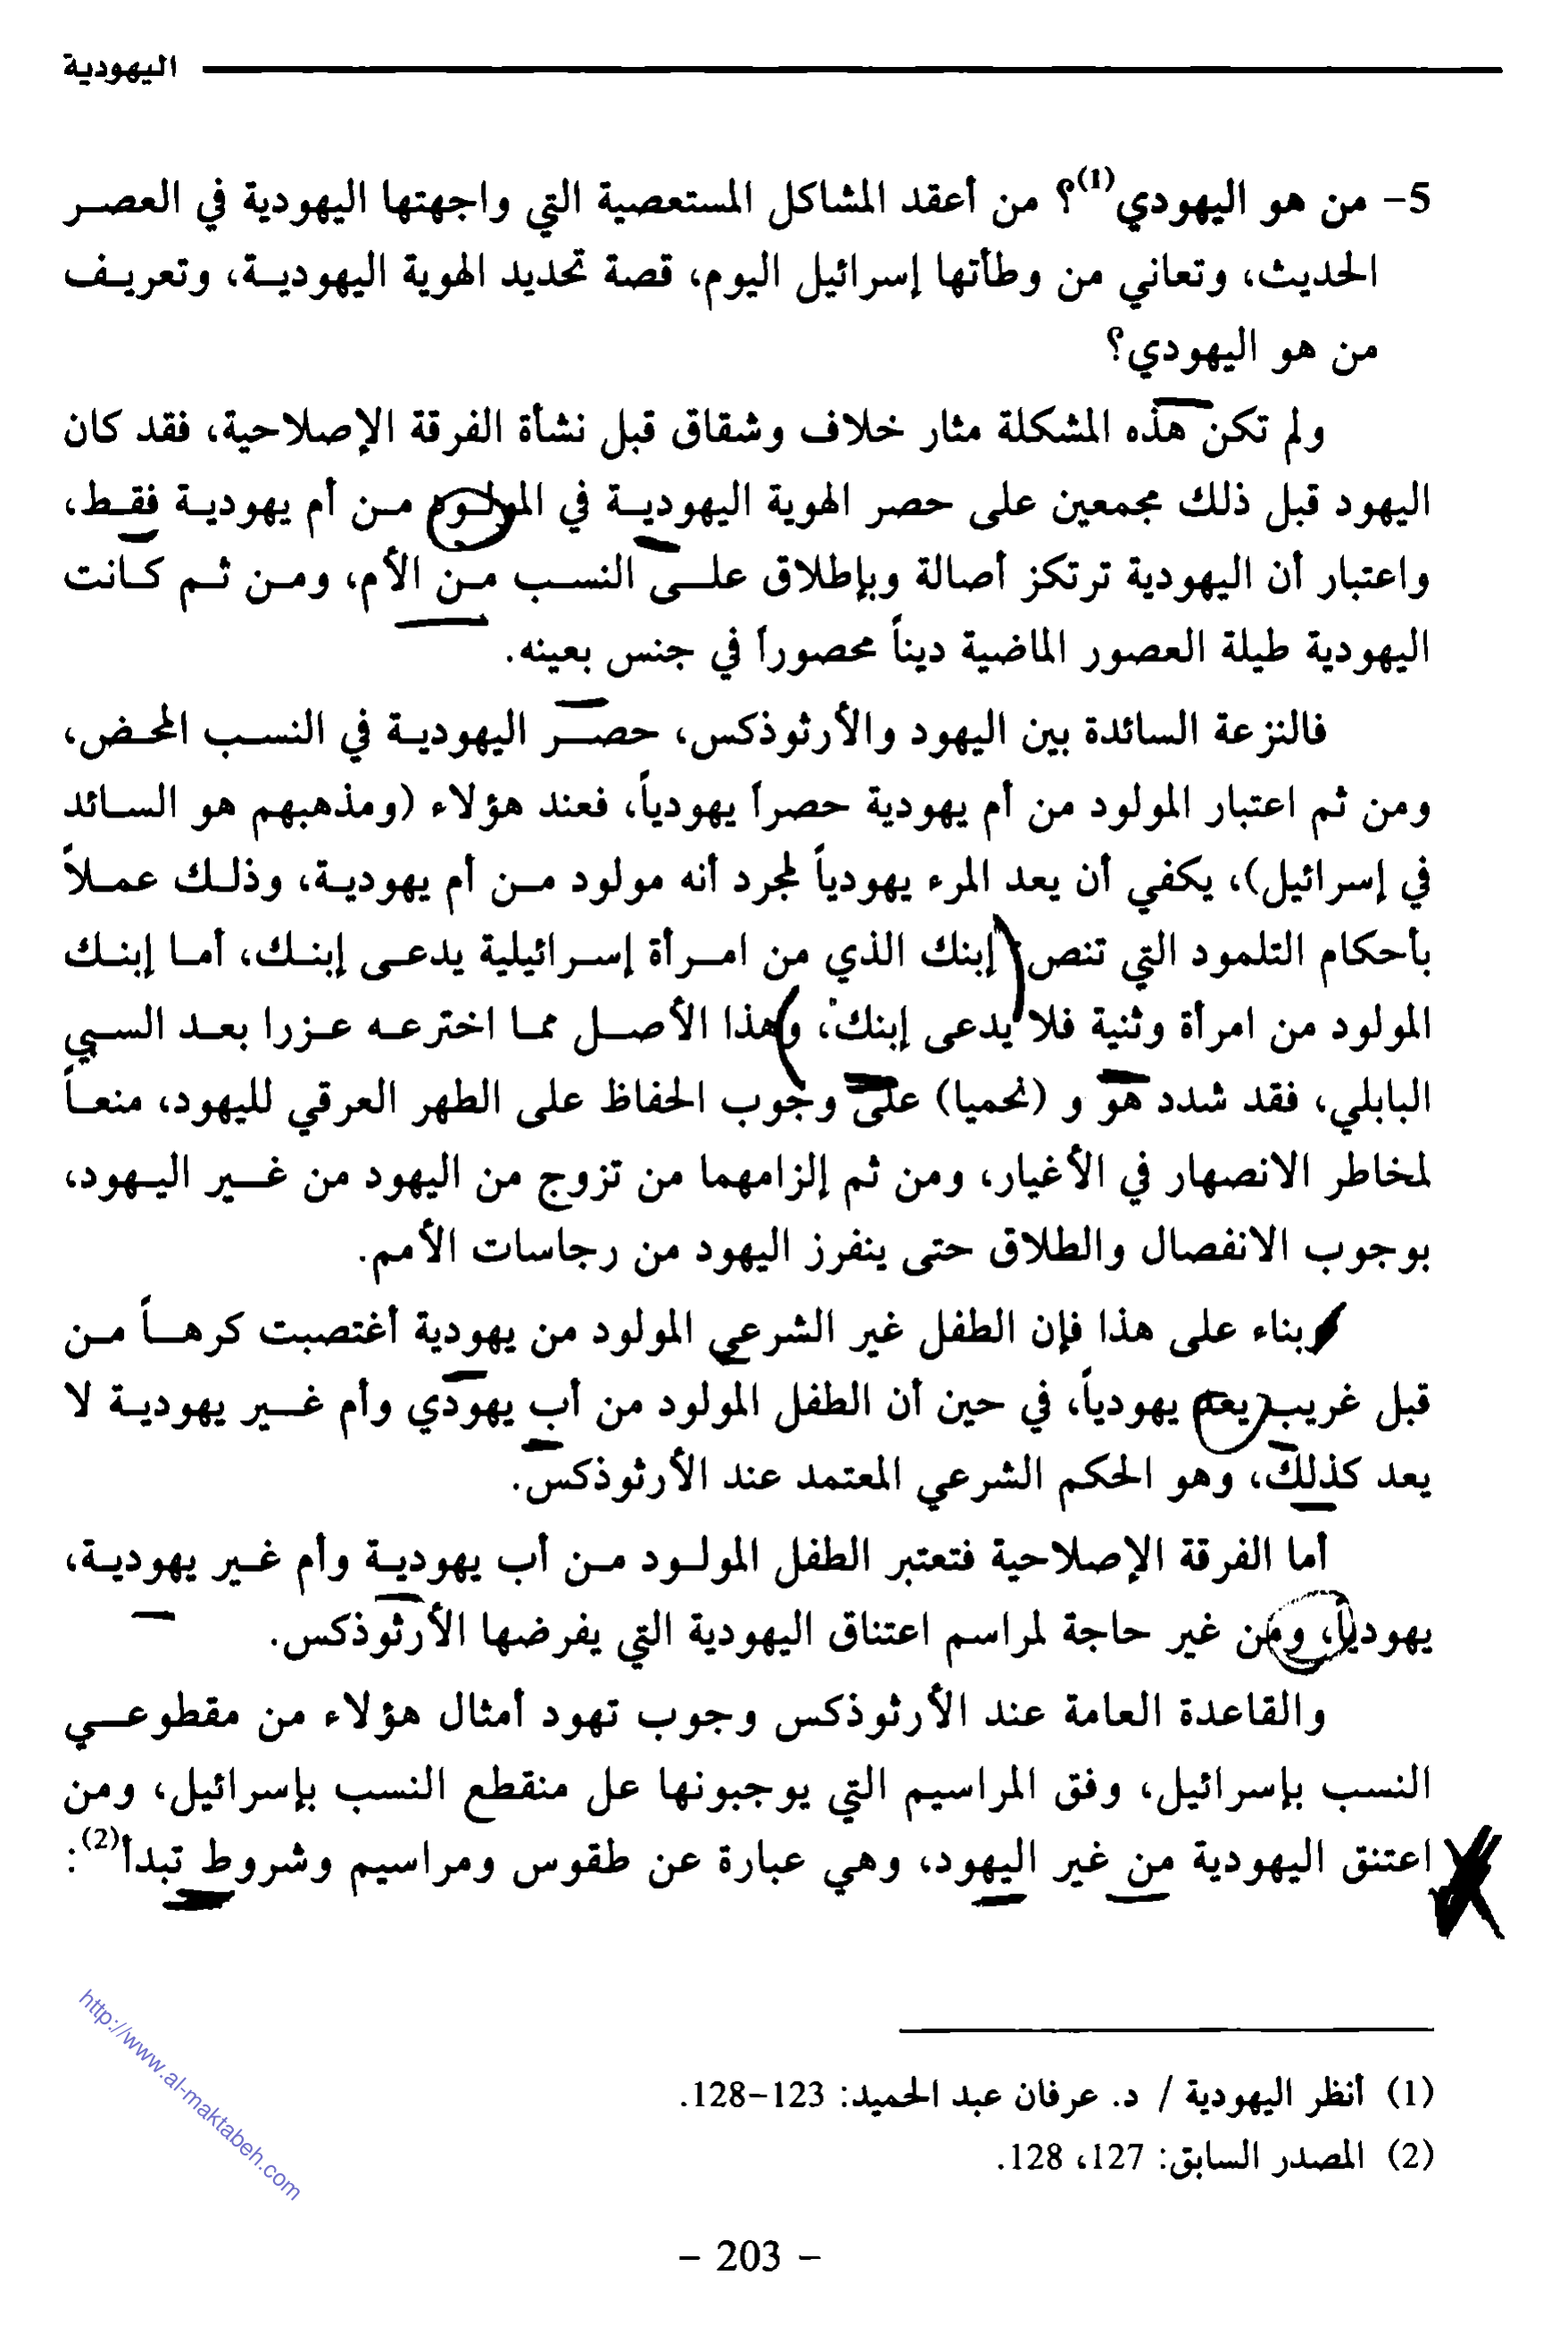 اليهودية
5- من هو اليهودي(1)؟ من أعقد المشاكل المستعصية التي واجهتها اليهودية في العصر
الحديث، وتعاني من وطأتها إسرائيل اليوم، قصة تحديد الهوية اليهودية، وتعريف
من هو اليهودي؟
ولم تكن هذه المشكلة مثار خلاف وشقاق قبل نشأة الفرقة الإصلاحية، فقد كان
اليهود قبل ذلك مجمعين على حصر الهوية اليهودية في المولود من أم يهودية فقط،
واعتبار أن اليهودية ترتكز أصالة وبإطلاق على النسب من الأم، ومن ثم كانت
اليهودية طيلة العصور الماضية ديناً محصوراً في جنس بعينه.
فالنزعة السائدة بين اليهود والأرثوذكس، حصر اليهودية في النسب المحض،
ومن ثم اعتبار المولود من أم يهودية حصراً يهودياً، فعند هؤلاء (ومذهبهم هو السائد
في إسرائيل)، يكفي أن يعد المرء يهودياً لمجرد أنه مولود من أم يهودية، وذلك عملاً
بأحكام التلمود التي تنص: إبنك الذي من امرأة إسرائيلية يدعى إبنك، أما إبنك
المولود من امرأة وثنية فلا يدعى إبنك، وهذا الأصل مما اخترعه عزرا بعد السبي
البابلي، فقد شدد هو و (نحميا) على وجوب الحفاظ على الطهر العرقي لليهود، منعاً
لمخاطر الانصهار في الأغيار، ومن ثم إلزامهما من تزوج من اليهود من غير اليهود،
بوجوب الانفصال والطلاق حتى ينفرز اليهود من رجاسات الأمم.
وبناء على هذا فإن الطفل غير الشرعي المولود من يهودية أغتصبت كرهاً من
قبل غريب يعد يهودياً، في حين أن الطفل المولود من أب يهودي وأم غير يهودية لا
يعد كذلك، وهو الحكم الشرعي المعتمد عند الأرثوذكس.
أما الفرقة الإصلاحية فتعتبر الطفل المولود من أب يهودية وأم غير يهودية،
يهودياً، ومن غير حاجة لمراسم اعتناق اليهودية التي يفرضها الأرثوذكس.
والقاعدة العامة عند الأرثوذكس وجوب تهود أمثال هؤلاء من مقطوعي
النسب بإسرائيل، وفق المراسيم التي يوجبونها عل منقطع النسب بإسرائيل، ومن
اعتنق اليهودية من غير اليهود، وهي عبارة عن طقوس ومراسيم وشروط تبدأ(2):
(1) أنظر اليهودية / د. عرفان عبد الحميد: 123-128.
(2) المصدر السابق: 127، 128.
http://www.al-maktabeh.com
- 203 -